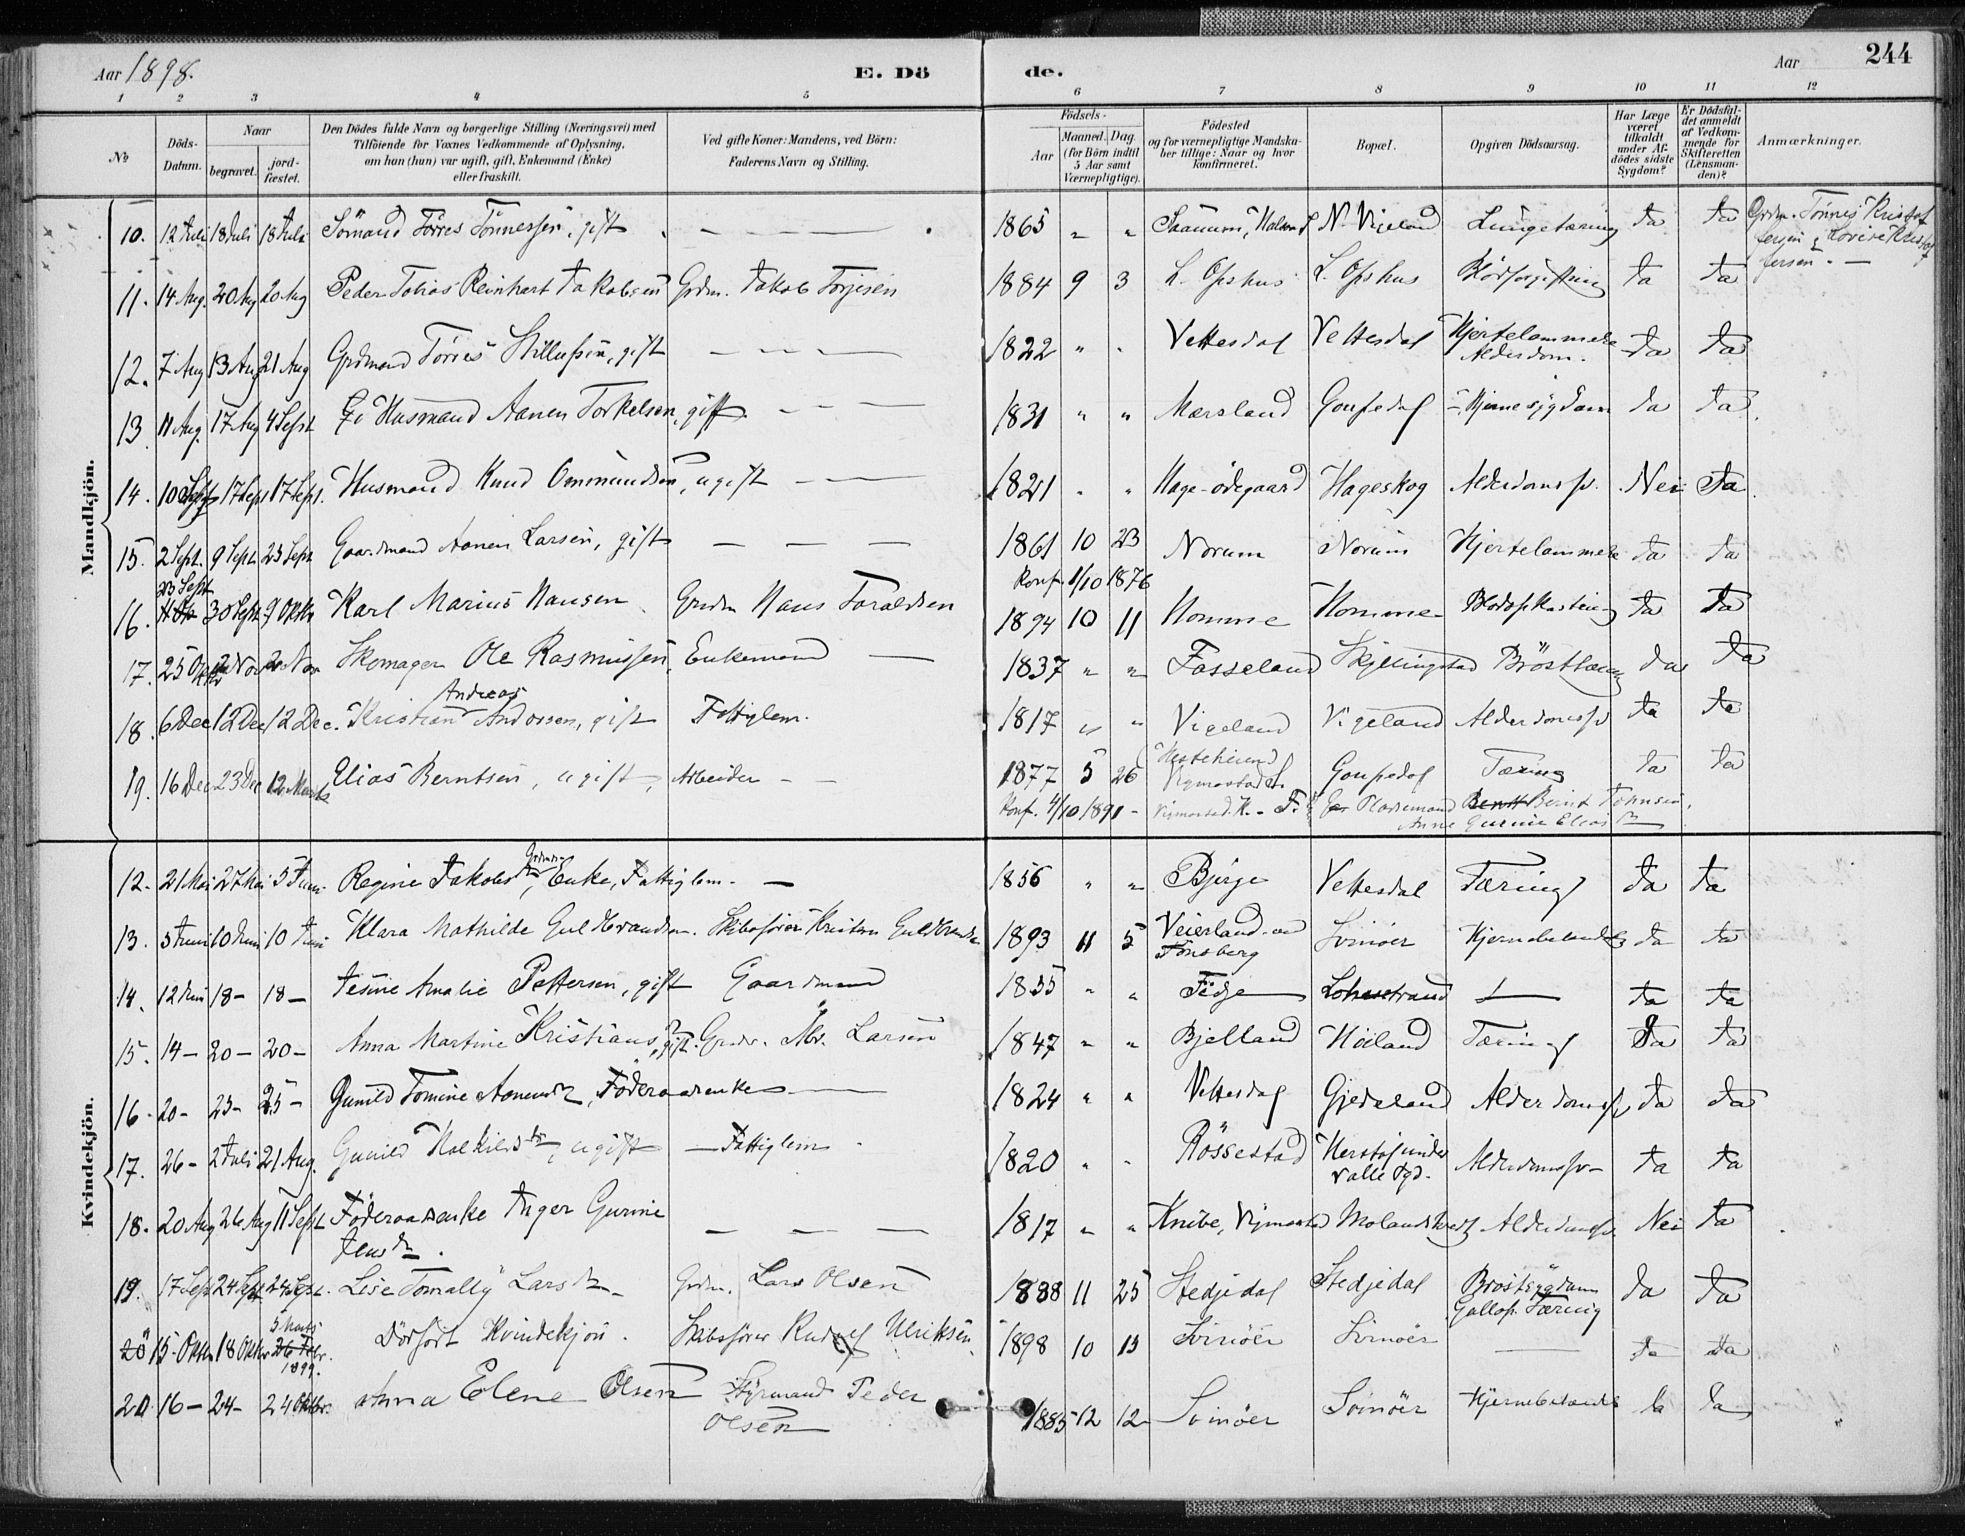 Aar 1898. E. Dö de. Aar 244
1 2 3 4 5 6 7 8 9 10 11 12
№ Döds-Datum. Naar begravet. jord-fæstet. Den Dödes fulde Navn og borgerlige Stilling (Næringsvei) med Tilföiende for Voxnes Vedkommende af Oplysning, om han (hun) var ugift, gift, Enkemand (Enke) eller fraskilt. Ved gifte Koner: Mandens, ved Börn: Faderens Navn og Stilling. Födsels- Aar Maaned. Dag. (for Börn indtil 5 Aar samt Værnepligtige). Födested og for værnepligtige Mandskaber tillige: Naar og hvor konfirmeret. Bopæl. Opgiven Dödsaarsag. Har Læge været tilkaldt under Afdödes sidste Sygdom? Er Dödsfaldet anmeldt af Vedkommende for Skifteretten (Lensmanden)? Anmærkninger.
Mandkjön.
10. 12 Juli 18 Juli 18 Juli Sömand Törres Tönnessen, gift — — — 1865 " " N. Vigeland Lungetæring Ja Ja Grdm. Tönnes Kristof
fersen
fersen. —
11. 14 Aug. 20 Aug 20 Aug Peder Tobias Reinhart Jakobsen Grdm. Jakob Torjesen 1884 9 3 L. Opshus L. Opshus Blodforgiftning Ja Ja
12. 7 Aug 13 Aug 21 Aug Grdmand Törres gift — — — 1822 " " Vettesdal Vettesdal Hjertelammelse
Alderdom. Ja Ja
13 11 Aug. 17 Aug 4 Sept Husmand Aanen Torkelsen, gift — — — 1831 " " Mærsland Goupedal Hjernesygdom Ja Ja
14. 10 Sept 17 Sept 17 Sept. Husmand Knud Ommundsen, ugift — — 1821 " " Hage-ödegaard Hageskog Alderdomssv. Nei Ja
15. 2 Sept. 9 Sept 25 Sept Gaardmand Aanen Larsen, gift — — — 1861 10 23 Norum Norum Hjertelammelse Ja Ja
Konf. 1/10 1876
23 Sept
16. 30 Sept 9 Oktbr Karl Marius Hansen Grdm Hans Toraldsen 1894 10 11 Homme Homme Ja Ja
17. 25 Oktbr 2 Nov 20 Nov Skomager Ole Rasmussen, Enkemand — 1837 " " Fasseland Skjellingstad Bröstbetændelse Ja Ja
Andreas
18. 6 Dec 12 Dec 12 Dec. Kristian Andossen, gift Fattiglem. 1817 " " Vigeland Vigeland Alderdomssv Ja Ja
19. 16 Dec 23 Dec 12 Marts Elias Berntsen, ugift, Arbeider — — 1877 5 26 Goupedal Tæring Ja Ja
Konf. 4/10 1891 - Vigmostad K. - F. Pladsemand Bernt Johnsen.
Anne Gurine Elias Dr
Kvindekjön.
12. 21 Mai 27 Mai 5 Juni Regine Jakobsdtr, Grdm Enke, Fattiglem. — 1856 " " Bjerge Vettesdal Tæring Ja Ja
13. 5 Juni 10 Juni 10 Juni Klara Mathilde Guldbrandsen. Skibsförer Kristen Guldbrandsen 1893 11 5 Veierland ved
Tönsberg Svinöer Hjernebetændelse Ja Ja
14. 12 Juni 18 — 18 — Jesine Amalie Pettersen, gift Gaardmand 1835 " " Fidje Lohnestrand — Ja Ja
15. 14 — 20 — 20 — Anna Martine Kristians, gift. Grdm. Abr. Larsen 1847 " " Bjelland Höiland Tæring Ja Ja
16. 20 — 25 — 25 — Gunild Tomine Aanensdr, Föderaadsenke — 1824 " " Vettesdal Gjedeland Alderdomssv Ja Ja
17. 26 — 2 Juli 21 Aug. Gunild ugift — Fattiglem 1820 " " Rössestad under
Valle Pgd. Alderdomssv — Ja Ja
18. 20 Aug 26 Aug 11 Sept Föderaadsenke Inger Gurine
Jensdr. — — — 1817 " " Knibe, Vigmostad Alderdomssv. Nei Ja
19. 17 Sept 24 Sept 24 Sept. Lise Tomally Larsdr Grdm. Lars Olsen 1888 11 25 Stedjedal Stedjedal Brostsygdom
Gallop. Tæring Ja Ja
20 15 Oktbr 18 Oktbr 5 Marts
26 Febr.
1899. Dödfödt Kvindekjön. Skibsförer Rudolf Ulriksen. 1898 10 15 Svinöer Svinöer — Ja Ja
20 16 — 24 — 24 Oktbr. Anna Elene Olsen Styrmand Peder
Olsen 1885 12 12 Svinöer Svinöer Hjernebetændelse Ja Ja